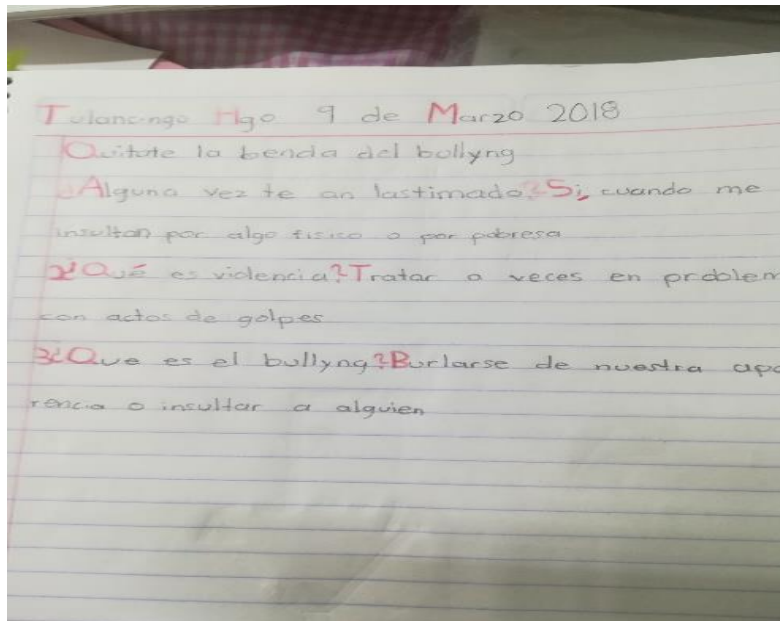 Tulancingo Hgo 9 de Marzo 2018
Quitate la benda del bollyng
¿Alguna vez te an lastimado? Si, cuando me
insultan por algo fisico o por pobresa
2¿Qué es violencia? Tratar a veces en problem
con actos de golpes
3¿Que es el bullyng? Burlarse de nuestra apa
rencia o insultar a alguien